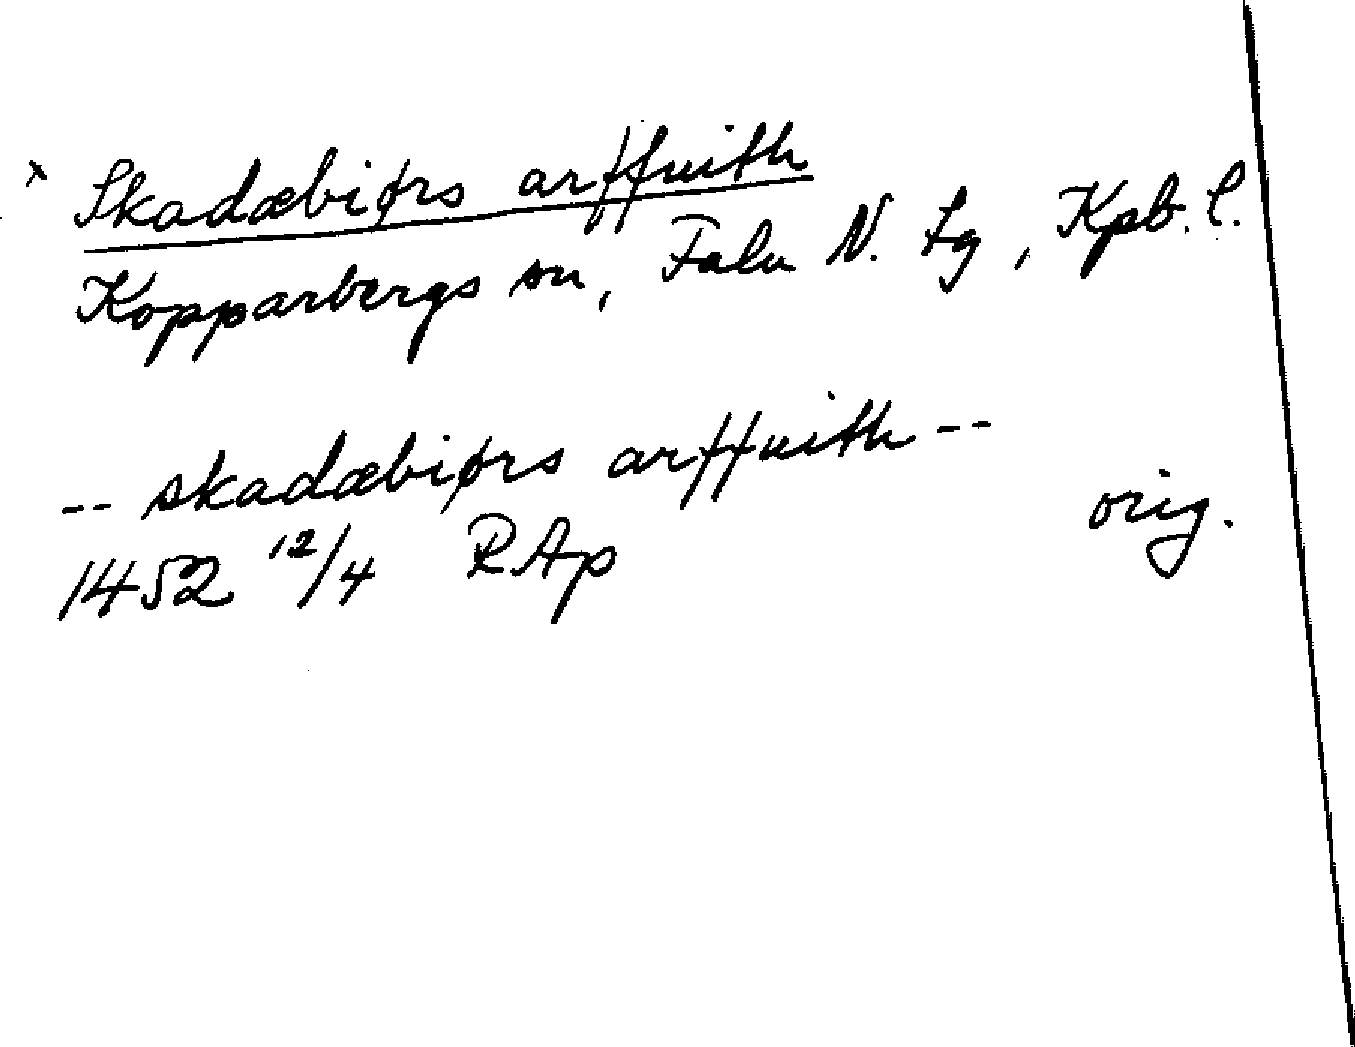 x Skadæbiørs arffuith
Kopparbergs sn, Falu N. tg, Kpb. l.
-- skadæbiørs arffuith --
1452 12/4 RAp orig.